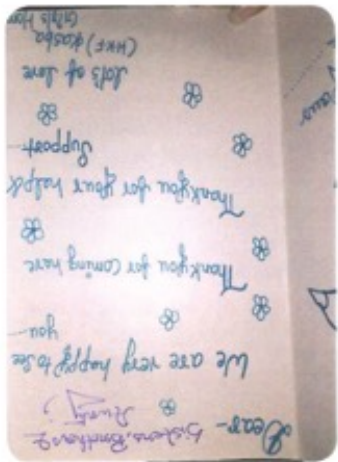 Dear- Sisters, Brothers &
Aunty
We are very happy to see
you
Thankyou for coming here
Thankyou for your help &
Support
Lot's of love
(HKF) Kasba
Girls Hom